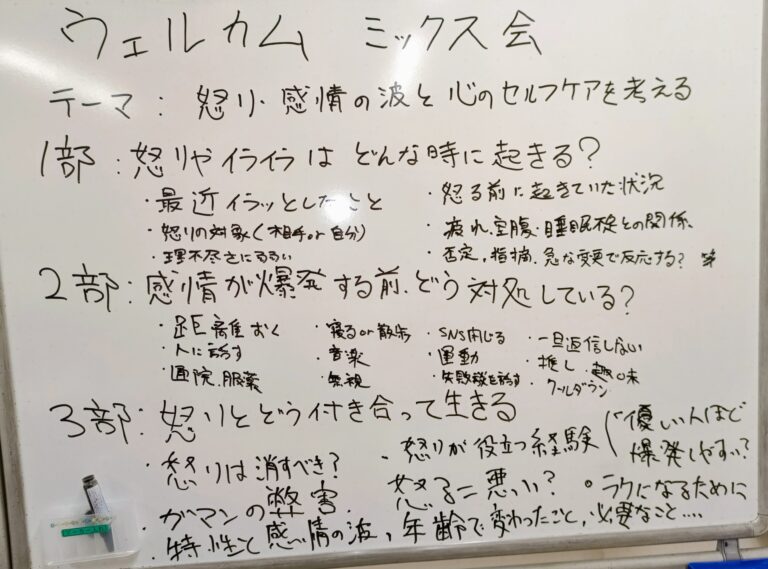 ウェルカム ミックス会
テーマ: 怒り・感情の波と心のセルフケアを考える
1部:怒りやイライラはどんな時に起きる?
・最近イラッとしたこと
・怒りの対象(相手or自分)
・理不尽さにうるい
・怒る前に起きていた状況
・疲れ、空腹・睡眠不足との関係
・否定、指摘、急な変更で反応する?
2部:感情が爆発する前、どう対処している?
・距離おく
・人に話す
・通院、服薬
・寝るor散歩
・音楽
・無視
・SNS閉じる
・運動
・失敗談を話す
・一旦返信しない
・推し、趣味
・クールダウン
3部:怒りとどう付き合って生きる
・怒りは消すべき?
・ガマンの弊害
・怒りが役立つ経験
怒る=悪い?
優しい人ほど
爆発しやすい?
○ラクになるために
・特性と感情の波、年齢で変わったこと、必要なこと….